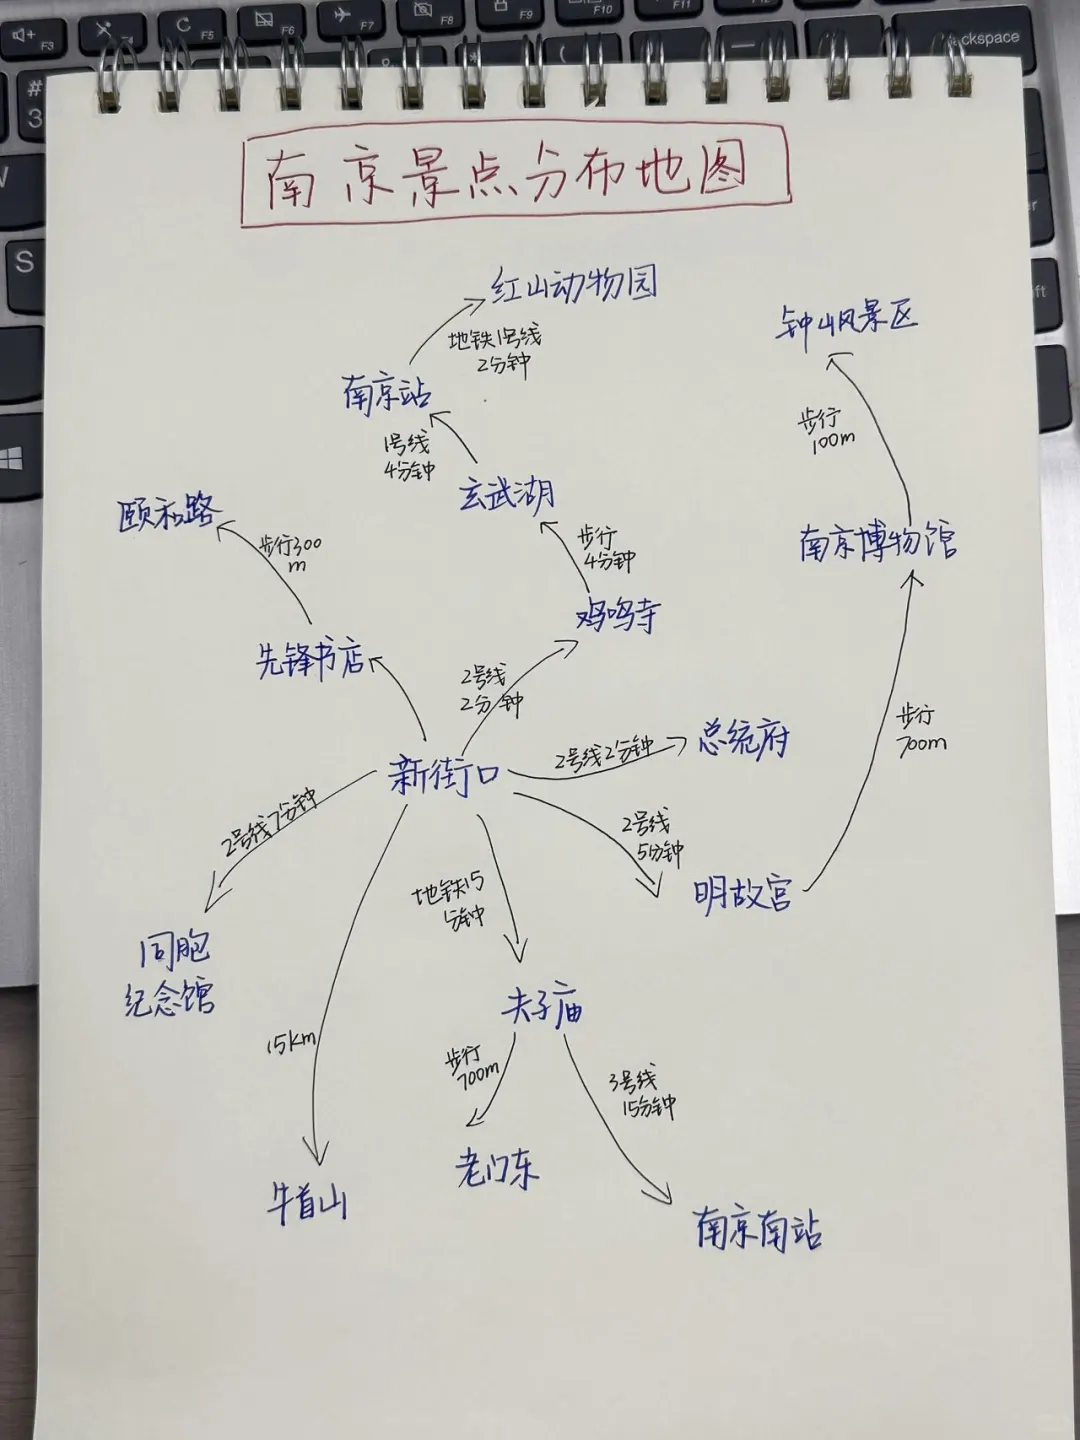 F3
F5
F6
F7
F8
F9
F10
F11
ckspace
#
3
S
南京景点分布地图
红山动物园
地铁1号线
2分钟
钟山风景区
南京站
1号线
4分钟
步行
100m
玄武湖
颐和路
步行300
m
步行
4分钟
南京博物馆
鸡鸣寺
先锋书店
2号线
2分钟
步行
700m
总统府
2号线2分钟
新街口
2号线7分钟
2号线
5分钟
地铁15
分钟
明故宫
同胞
纪念馆
夫子庙
15km
步行
700m
3号线
15分钟
老门东
牛首山
南京南站